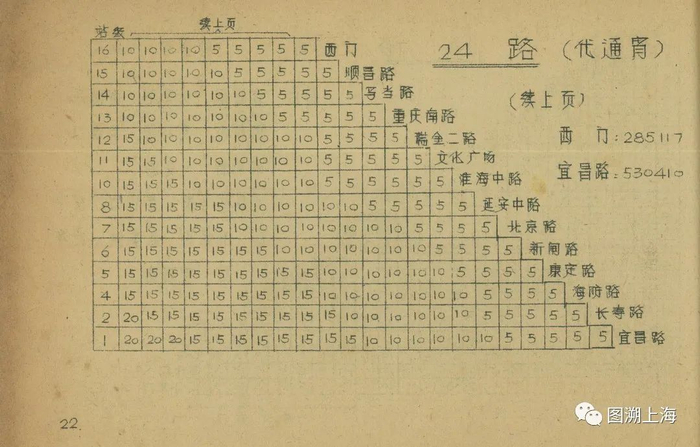 站级 续上页
16 10 10 10 10 5 5 5 5 5 西门
15 10 10 10 10 10 5 5 5 5 5 顺昌路
14 10 10 10 10 10 10 5 5 5 5 5 马当路
13 10 10 10 10 10 10 10 5 5 5 5 5 重庆南路
12 15 10 10 10 10 10 10 10 10 5 5 5 5 瑞金二路
11 15 15 10 10 10 10 10 10 10 5 5 5 5 5 文化广场
10 15 15 15 10 10 10 10 10 10 5 5 5 5 5 5 淮海中路
8 15 15 15 15 15 10 10 10 10 10 10 5 5 5 5 5 延安中路
7 15 15 15 15 15 10 10 10 10 10 10 10 10 5 5 5 5 北京路
6 15 15 15 15 15 15 15 10 10 10 10 10 10 10 5 5 5 5 新闸路
5 15 15 15 15 15 15 15 15 15 10 10 10 10 10 10 5 5 5 5 康定路
4 15 15 15 15 15 15 15 15 15 10 10 10 10 10 10 10 5 5 5 5 海防路
2 20 15 15 15 15 15 15 15 15 15 10 10 10 10 10 10 5 5 5 5 5 长寿路
1 20 20 20 15 15 15 15 15 15 15 10 10 10 10 10 10 10 5 5 5 5 5 宜昌路
24 路 (代通宵)
(续上页)
西 门:285117
宜昌路:530410
22
图溯上海